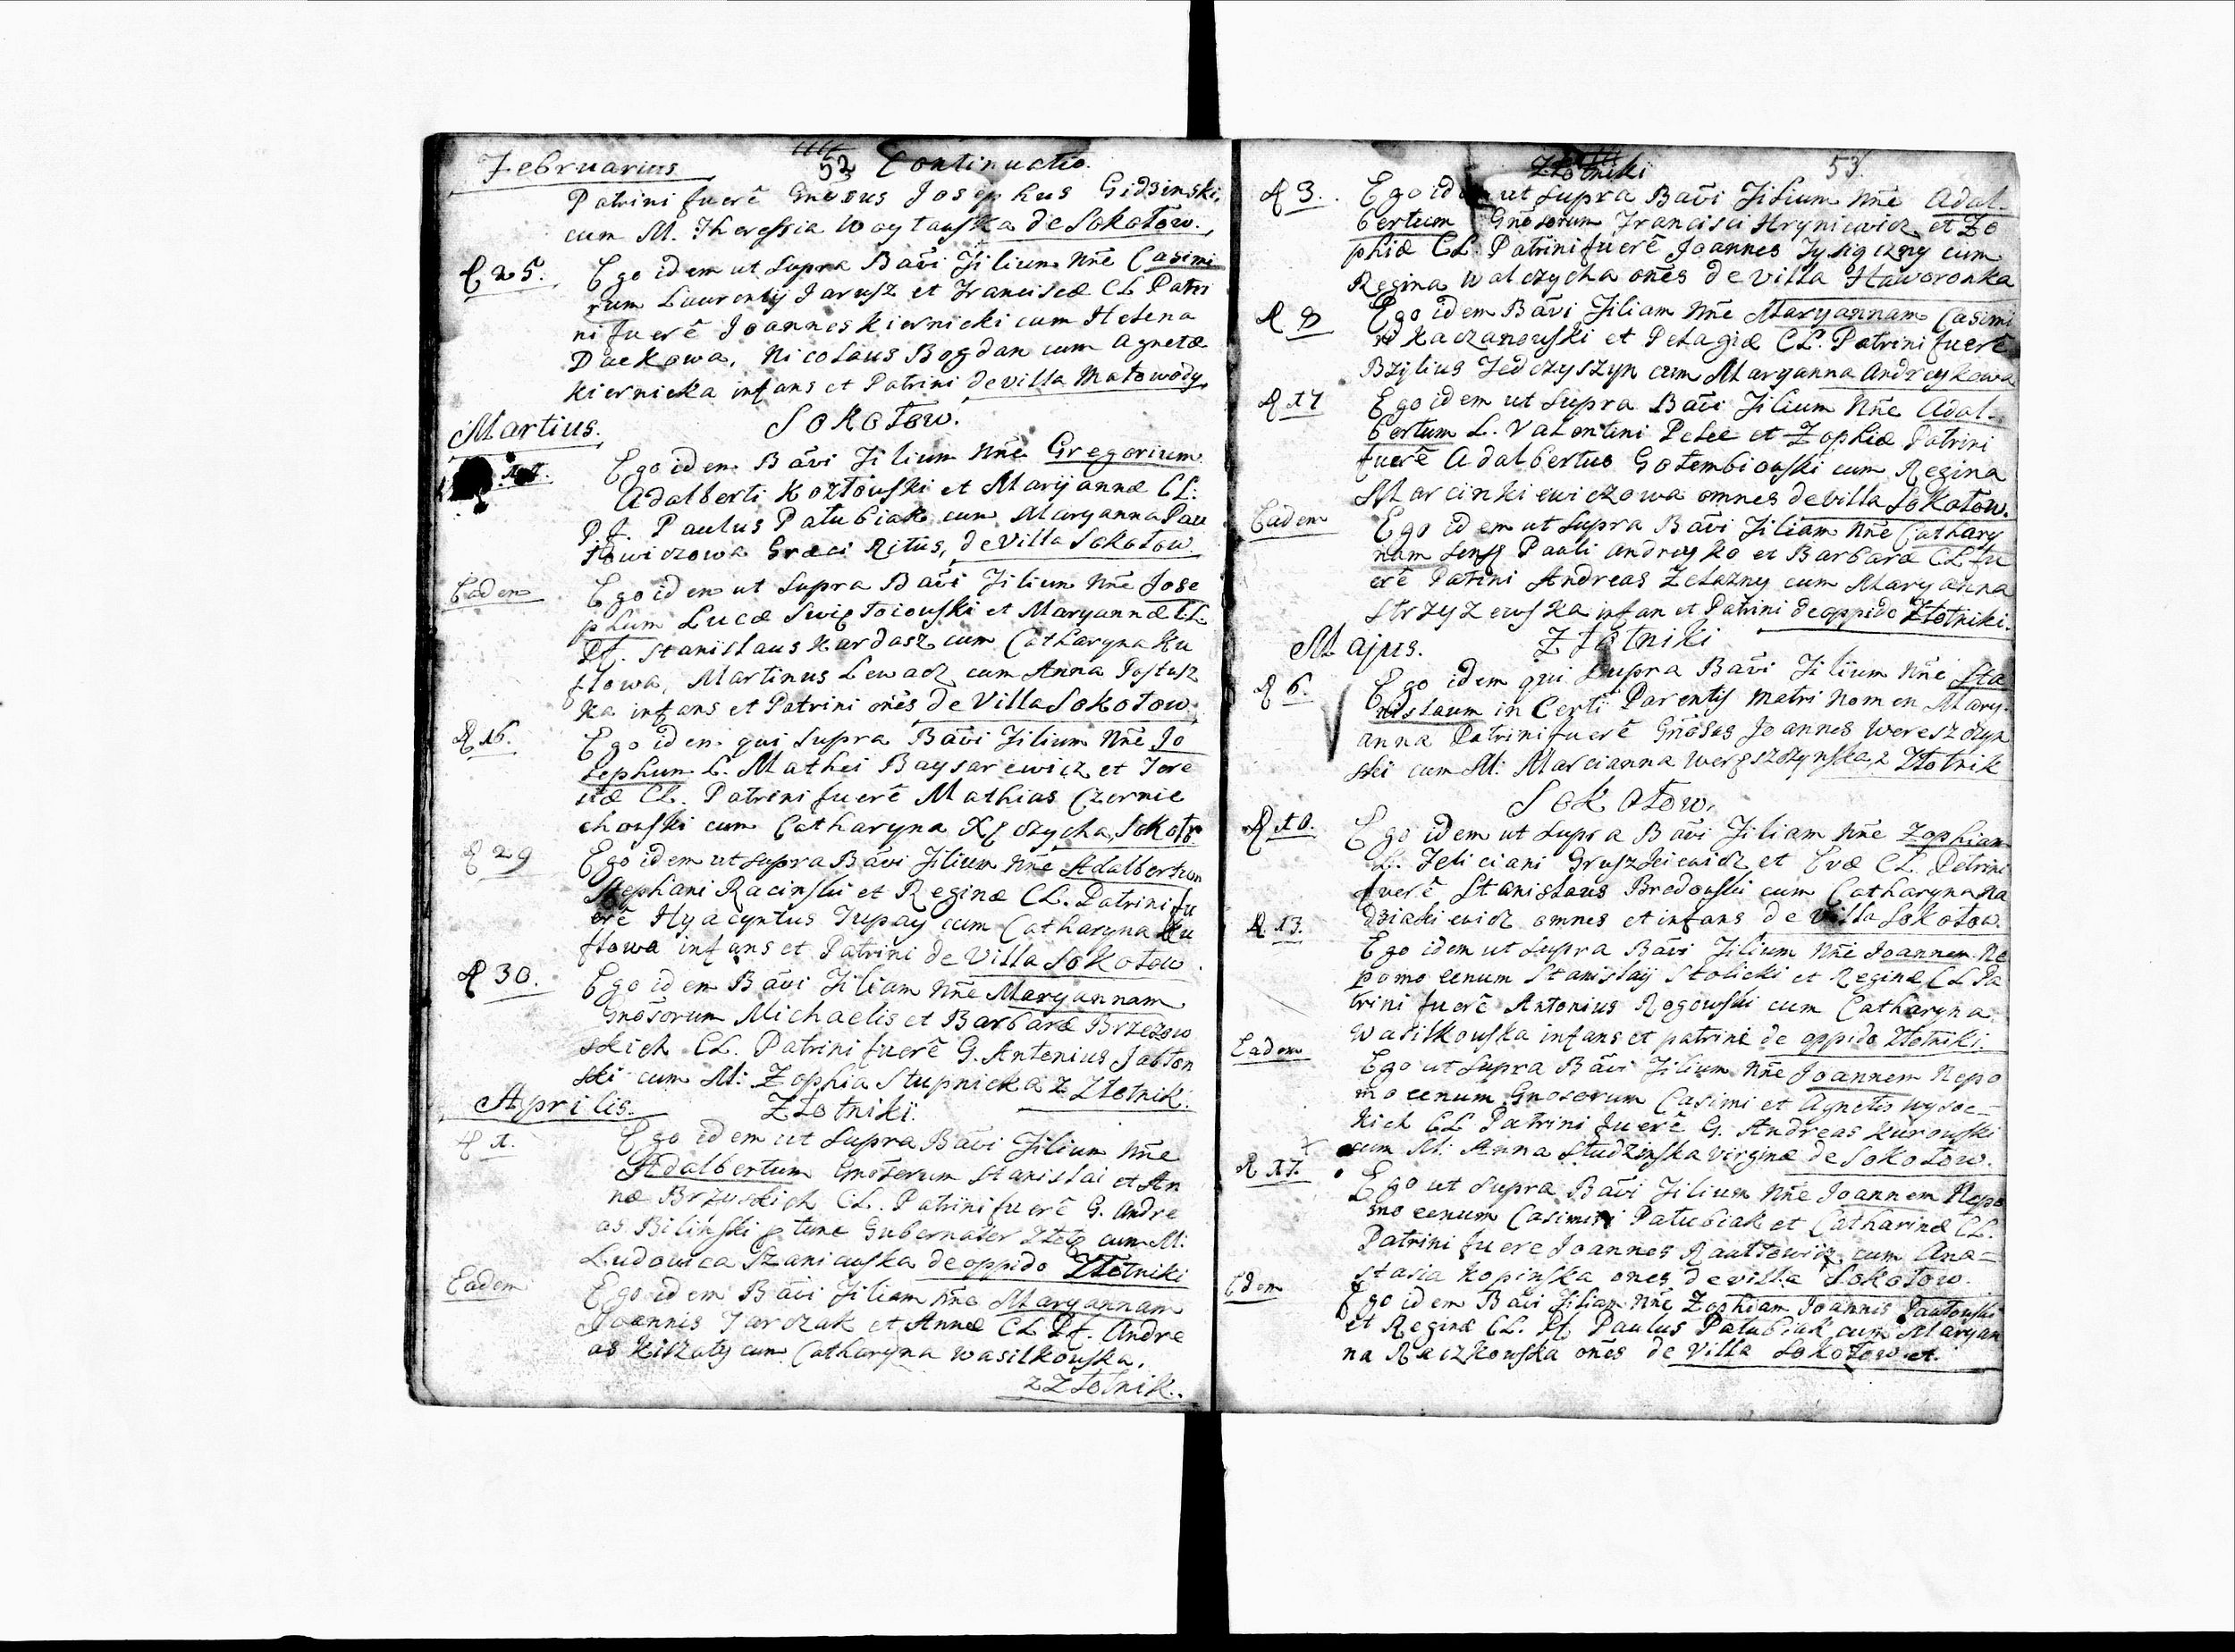 Februarius 52 Continuatio.
Patrini fuerē Gnosus Josephus Gidzinski,
cum M. Theressia Woytaufka de Sokołow.
25. Ego idem ut Supra Bāvi Filium Nn̄e Casimi
rum Laurentij Jarusz et Francisce CL Patri
ni fuerē Joannes Kiernicki cum Helena
Daekowa, Nicolaus Bogdan cum Agnetæ
Kiernicka infans et Patrini de villa Małowody
Sokołow.
Martius.
Ego idem Bāvi Filium Nn̄e Gregorium
Adalberti Kozłoufki et Maryannæ CL.
P.f. Paulus Patubiak cum Maryanna Pau
łowiczowa Græci Ritûs, de Villa Sokołow
Eadem Ego idem ut Supra Bāvi Filium Nn̄e Jose
phum Lucæ Swiętoioufki et Maryannæ CL.
Pf. Stanislaus Kardasz cum Catharyna Ku
flowa, Martinus Lewacz cum Anna Jostusz
ka infans et Patrini on̄es de Villa Sokołow.
16. Ego idem qui Supra Bāvi Filium Nn̄e Jo
sephum L. Mathei Baysarewicz et Tere
siæ CL. Patrini fuerē Mathias Czernie
choufki cum Catharyna Xięszycha, Sokoło
29 Ego idem ut Supra Bāvi Filium Nn̄e Adalbertum
Stephani Racinfki et Reginæ CL. Patrini fu
erē Hyacyntus Tupay cum Catharyna Ku
flowa infans et Patrini de Villa Sokołow
30. Ego idem Bāvi Filiam Nn̄e Maryannam
Gnōsorum Michaelis et Barbaræ Brzezow
skich CL. Patrini fuerē G. Antonius Jabłon
ski cum M: Zophia Stupnicka z Złotnik.
Aprilis. Złotniki.
1. Ego idem ut Supra Bāvi Filium Nn̄e
Adalbertum Gnōsorum Stanislai et An
næ Brzuskich CL. Patrini fuerē G. Andre
as Bilinfki p tunc Gubernator cum M:
Ludowica Szaniaufka de oppido Złotniki
Eadem Ego idem Bāvi Filiam Nn̄e Maryannam
Joannis Jarczak et Annæ CL Pf. Andre
as Kiszaty cum Catharyna Wasilkoufka.
z Złotnik.
Złotniki 53
3. Ego idem ut Supra Bāvi Filium Nn̄e Adal-
bertum Gnōsorum Francisci Hryniewicz et Zo
phiæ CL. Patrini fuerē Joannes Tysiączny cum
Regina Walczycha on̄es de villa Haworonka
8 Ego idem Bāvi Filiam Nn̄e Maryannam Casimi
ri Kaczanoufki et Pelagiæ CL. Patrini fuerē
Bzijlius Fedczyszyn cum Maryanna Andreykowa
17 Ego idem ut Supra Bāvi Filium Nn̄e Adal-
bertum L. Valentini Pelee et Zophiæ Patrini
fuerē Adalbertus Gołembioufki cum Regina
Marcinkiewiczowa omnes de villa Sokołow.
Eadem Ego idem ut Supra Bāvi Filiam Nn̄e Cathary
nam Pauli Andreyko et Barbaræ CL fu
erē Patrini Andreas Zelazny cum Maryanna
Strzyzewska infan et Patrini de oppido Złotniki.
Majus. Złotniki
6. Ego idem qui Supra Bāvi Filium Nn̄e Sta
nislaum in Certi Parentis Matri Nomen Mary-
anna Patrini fuerē Gnōsus Joannes Wereszczyn
ski cum M: Marcianna Weręszczynfka z Złotnik
Sokołow.
10. Ego idem ut Supra Bāvi Filiam Nn̄e Zophiam
L. Feliciani Gruszkiewicz et Evæ CL. Petrini
fuerē Stanislaus Bredoufki cum Catharyna Na
dziakiewicz omnes et infans de Villa Sokołow.
13. Ego idem ut Supra Bāvi Filium Nn̄e Joannem Ne
pomocenum Stanislaij Stolicki et Reginæ CL Pa
trini fuerē Antonius Rogowfki cum Catharyna
Wasilkoufka infans et patrini de oppido Złotniki.
Eadem Ego ut Supra Bāvi Filium Nn̄e Joannem Nepo
mocenum Gnosorum Casimi et Agnetis Wysoc-
kich CL Patrini fuerē G. Andreas Kuroufki
cum M: Anna Studzinfka virginæ de Sokołow.
17. Ego ut Supra Bāvi Filium Nn̄e Joannem Nepo
mocenum Casimiri Patubiak et Catharinæ CL.
Patrini fuere Joannes Rautlowicz cum Ana-
stasia Kopinfka ones de villa Sokołow.
Edem Ego idem Bāvi Filiam Nn̄e Zophiam Joannis Pautoufki
et Reginæ CL. Pf Paulus Patubiak cum Maryan
na Raczkoufka on̄es de Villa Sokołow et.